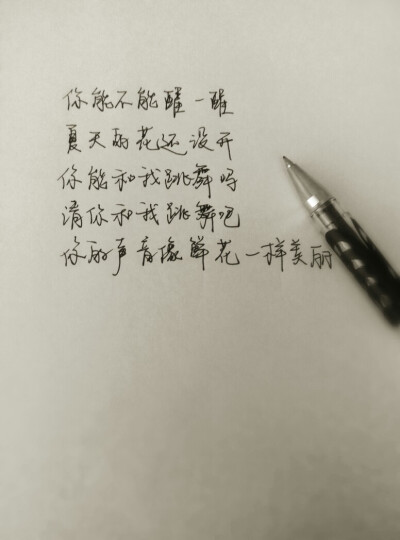 你能不能醒一醒
夏天的花还没开
你能和我跳舞吗
请你和我跳舞吧
你的声音像鲜花一样美丽